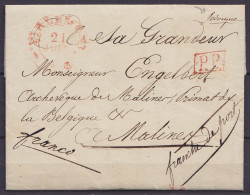 Belgique
21
Sa Grandeur
Monseigneur Engelbert
P.P.
Archevêque de Malines Primat de
la Belgique &
à Malines
franco
franche de port